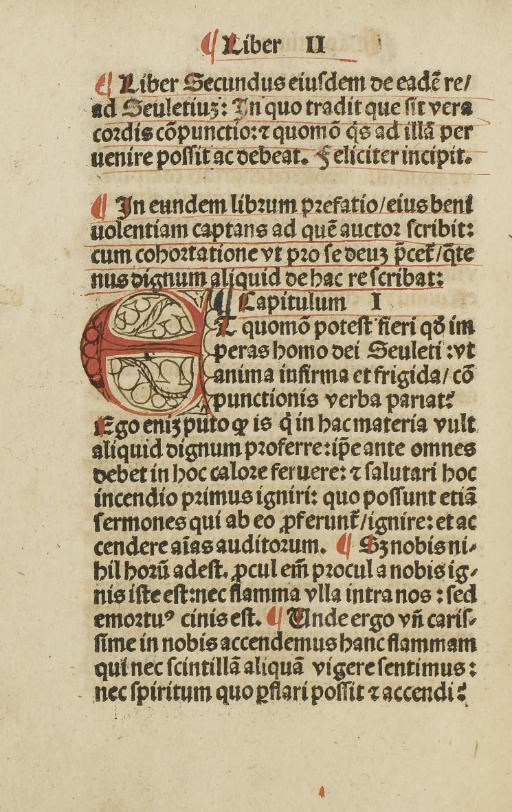 ¶ Liber II
¶ Liber Secundus eiuſdem de eadē re/
ad Seuletiuꝫ: In quo tradit que ſit vera
cordis cōpunctio: ⁊ quomō q̇s ad illā per
uenire poſſit ac debeat. Feliciter incipit.
¶ In eundem librum prefatio/eius beni
uolentiam captans ad quē auctor ſcribit:
cum cohortatione vt pro ſe deuꝫ p̄cet᷑/q̄te
nus dignum aliquid de hac re ſcribat:
¶ Capitulum I
ET quomō poteſt fieri qḋ im
peras homo dei Seuleti: vt
anima infirma et frigida/ cō
punctionis verba pariat?
Ego eniꝫ puto ꝙ is q̇ in hac materia vult
aliquid dignum proferre: ip̄e ante omnes
debet in hoc calore feruere: ⁊ ſalutari hoc
incendio primus igniri: quo poſſunt etiā
ſermones qui ab eo ꝓferunt᷑/ignire: et ac
cendere aīas auditorum. ¶ Sꝫ nobis ni⸗
hil horū adeſt. ꝓcul em̄ procul a nobis ig⸗
nis iſte eſt: nec flamma vlla intra nos: ſed
emortuꝰ cinis eſt. ¶ Unde ergo vn̄ cariſ⸗
ſime in nobis accendemus hanc flammam
qui nec ſcintillā aliquā vigere ſentimus:
nec ſpiritum quo ꝑflari poſſit ⁊ accendi?